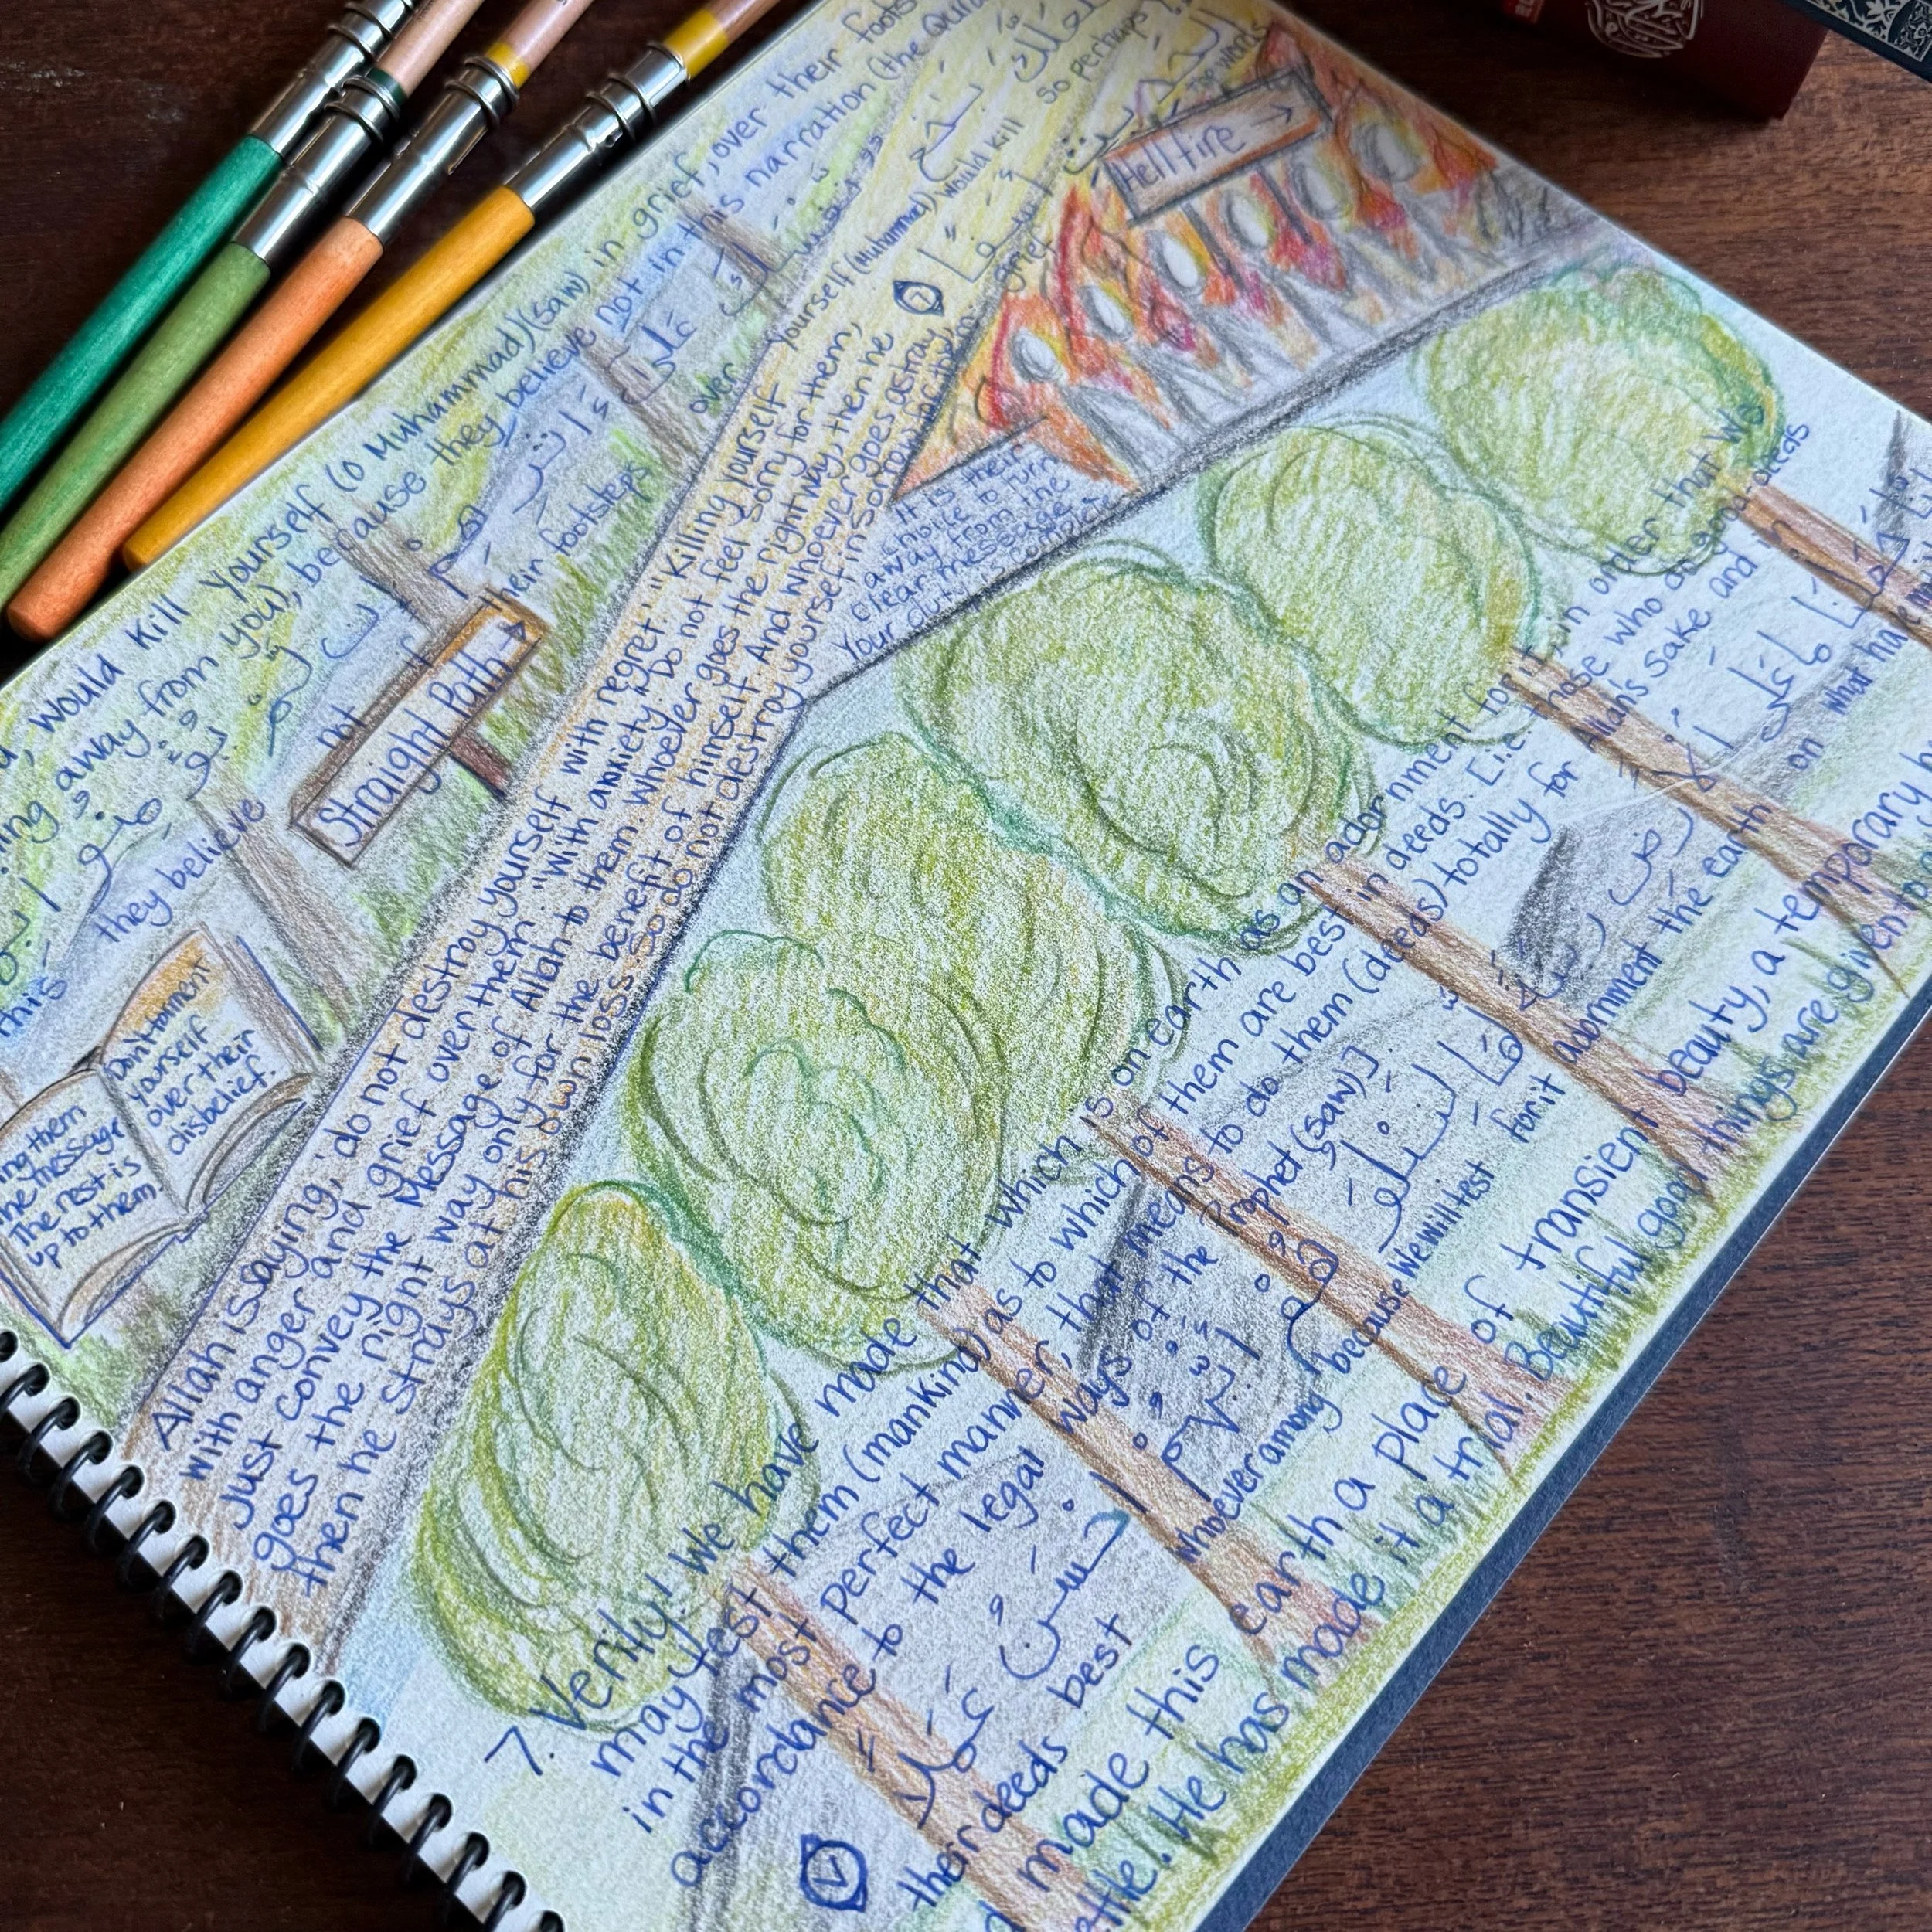 would kill yourself (O Muhammad) (saw) in grief, over their foots
away from you), because they believe not in this narration (the Qura
so perhaps
yourself (Muhammad) would kill
فلعلك
باخع
نفسك
grief
على
ءاثرهم
over
their footsteps
إن
لم
not
يؤمنوا
they believe
بهذا
this
أسفا
Hellfire →
Straight Path →
the message
The rest is
up to them.
Don't torment
yourself
over their
disbelief.
Allah is saying, 'do not destroy yourself with regret.' "Killing yourself
with anger and grief over them "With anxiety." Do not feel sorry for them,
Just convey the Message of Allah to them. Whoever goes the right way, then he
goes the right way only for the benefit of himself. And whoever goes astray,
then he strays at his own loss. So do not destroy yourself in sorrow for them.
It is their
choice to turn
away from the
clear message.
Your duty is complete
7. Verily! We have made that which is on earth as an adornment for it, in order that We
may test them (mankind) as to which of them are best in deeds. [i.e. those who do good deeds
in the most perfect manner, that means to do them (deeds) totally for Allah's sake and in
accordance to the legal ways of the Prophet (saw)].
إنا
جعلنا
ما
على
الأرض
زينة
لها
لنبلوهم
أيهم
أحسن
عملا
what
on
the earth
adornment
for it
because We will test
whoever among
best
their deeds
made this earth a place of transient beauty, a temporary
He has made it a trial. Beautiful good things are given